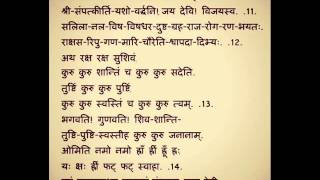 श्री-संपत्कीर्ति-यशो-वर्द्धनि! जय देवि! विजयस्व. .11.
सलिला-नल-विष-विषधर-दुष्ट-ग्रह-राज-रोग-रण-भयतः
राक्षस-रिपु-गण-मारि-चौरेति-श्वापदा-दिभ्यः. .12.
अथ रक्ष रक्ष सुशिवं
कुरु कुरु शान्तिं च कुरु कुरु सदेति.
तुष्टिं कुरु कुरु पुष्टिं
कुरु कुरु स्वस्तिं च कुरु कुरु त्वम्. .13.
भगवति! गुणवति! शिव-शान्ति-
तुष्टि-पुष्टि-स्वस्तीह कुरु कुरु जनानाम्.
ओमिति नमो नमो ह्राँ ह्रीं हूँ ह्रः
यः क्षः ह्रीं फट् फट् स्वाहा. .14.